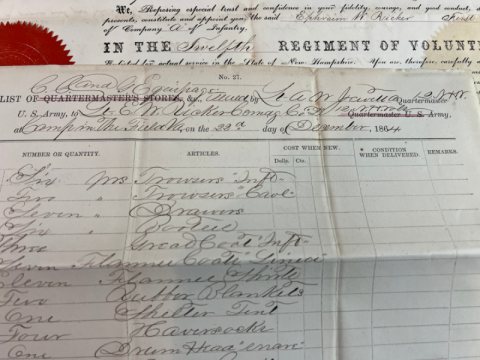 We, Reposing especial trust and confidence in your fidelity, courage, and good conduct, d
presents, constitute and appoint you, the said Ephraim W Ricker First
of Company A of Infantry,
IN THE Twelfth REGIMENT OF VOLUNT
for actual service in the State of New Hampshire. You are, therefore, carefully a
No. 27.
C. C. and G. Equipage
LIST OF QUARTERMASTER'S STORES, &c., issued by Lt A. W. Quartermaster 12 N.H.V.
U. S. Army, to Lt E. W. Ricker Comdg Co. Quartermaster U. S. Army,
at Camp in the Field Va on the 22nd day of December, 1864
NUMBER OR QUANTITY. ARTICLES. COST WHEN NEW. * CONDITION WHEN DELIVERED. REMARKS.
Dolls. Cts.
Six prs Trowsers Inft-
Two " Trowsers Cavl
Seven " Drawers
Six " Bootees
Three Great Coats Inft-
Seven Flannel Coats Lined
Eleven Flannel Shirts
Two Rubber Blankets
One Shelter Tent
Four Haversacks
One Drum Head